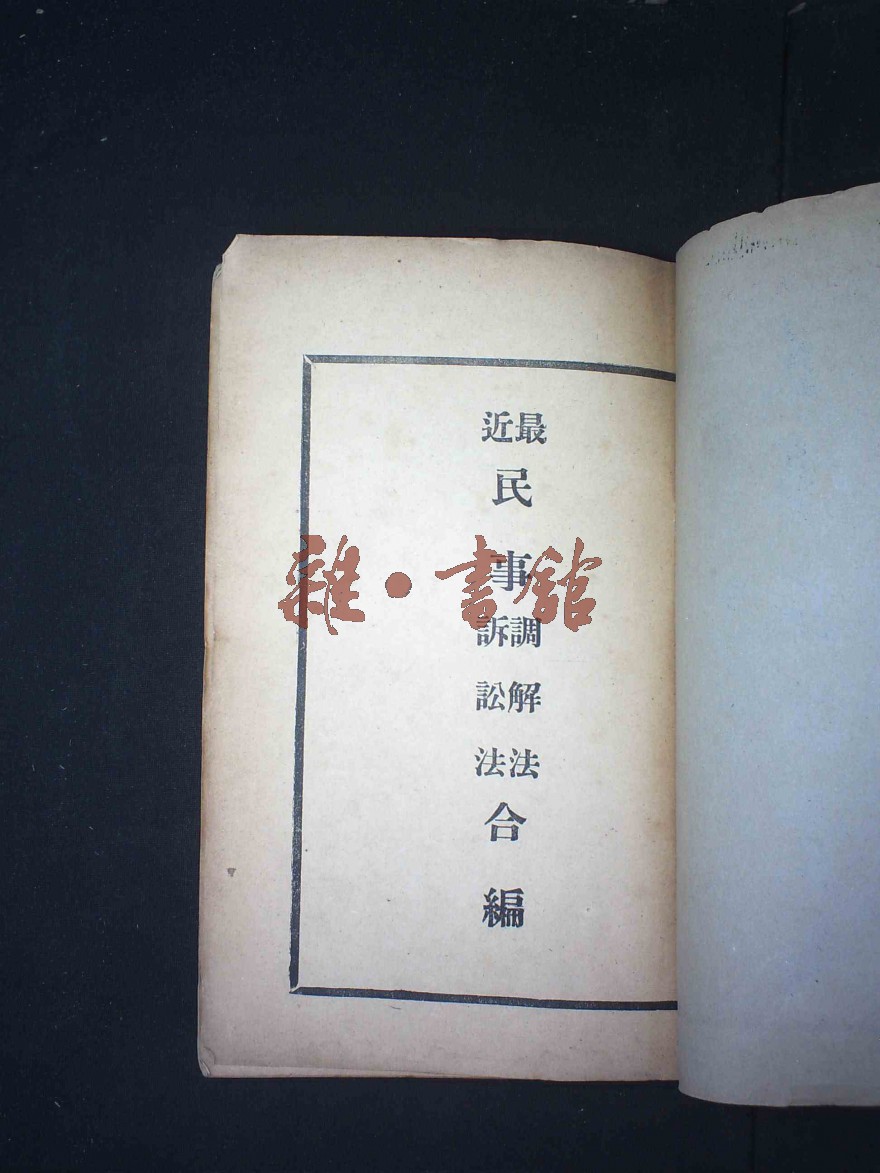 最近
民事
調解法
訴訟法
合編
雜·書館